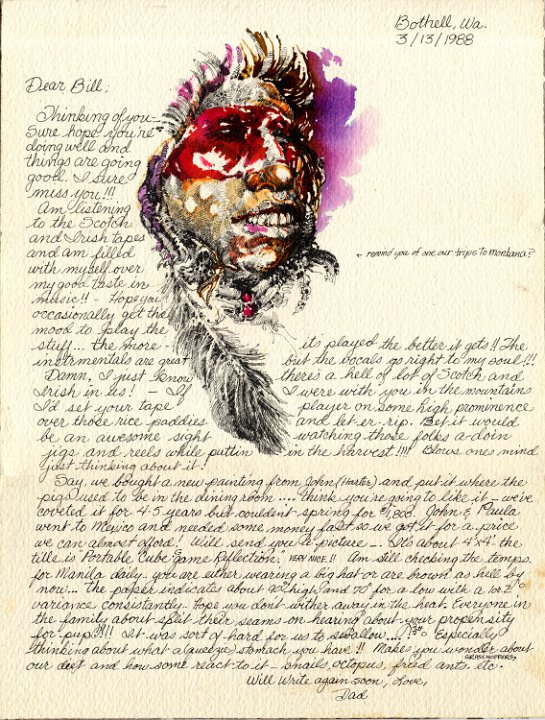 Bothell, Wa.
3/13/1988
Dear Bill,
Thinking of you-
Sure hope you're
doing well and
things are going
good. I sure
miss you!!!
Am listening
to the Scotch
and Irish tapes
and am filled
with myself over
my good taste in
music!! - Hope you
occasionally get the
mood to play the
stuff... the more - its played the better it gets!! The
instrmentals are great but the vocals go right to my soul!!!
Damn, I just know there's a hell of lot of Scotch and
Irish in us! - If I were with you in the mountains
I'd set your tape player on some high prominence
over those rice paddies and let-er-rip. Bet it would
be an awesome sight watching those folks a-doin
jigs and reels while puttin in the harvest!!!! Blows ones mind
just thinking about it!
← remind you of one our trips to montana?
Say, we bought a new painting from John (Harter) and put it where the
pigs used to be in the dining room.... think you're going to like it - we've
coveted it for 4-5 years but couldent spring for $1,800. John & Paula
went to Mexico and needed some money fast so we got it for a price
we can almost afford! Will send you a picture -. It's about 4'x4'. the
title is "Portable Cube Game Reflection." VERY NICE!! Am still checking the temps.
for Manila daily - you are either wearing a big hat or are brown as hell by
now... The paper indicates about 90 high and 70 for a low with a 1 or 2°
variance consistantly. Hope you dont wither away in the heat. Everyone in
the family about split their seams on hearing about your propensity
for pup?!!! It was sort of hard for us to swallow.... Especially
thinking about what a (queezy) stomach you have!! Makes you wonder about
our diet and how some react to it - snails, octopus, fried ants, GRASSHOPPERS, etc.
Will Write again soon, Love,
Dad